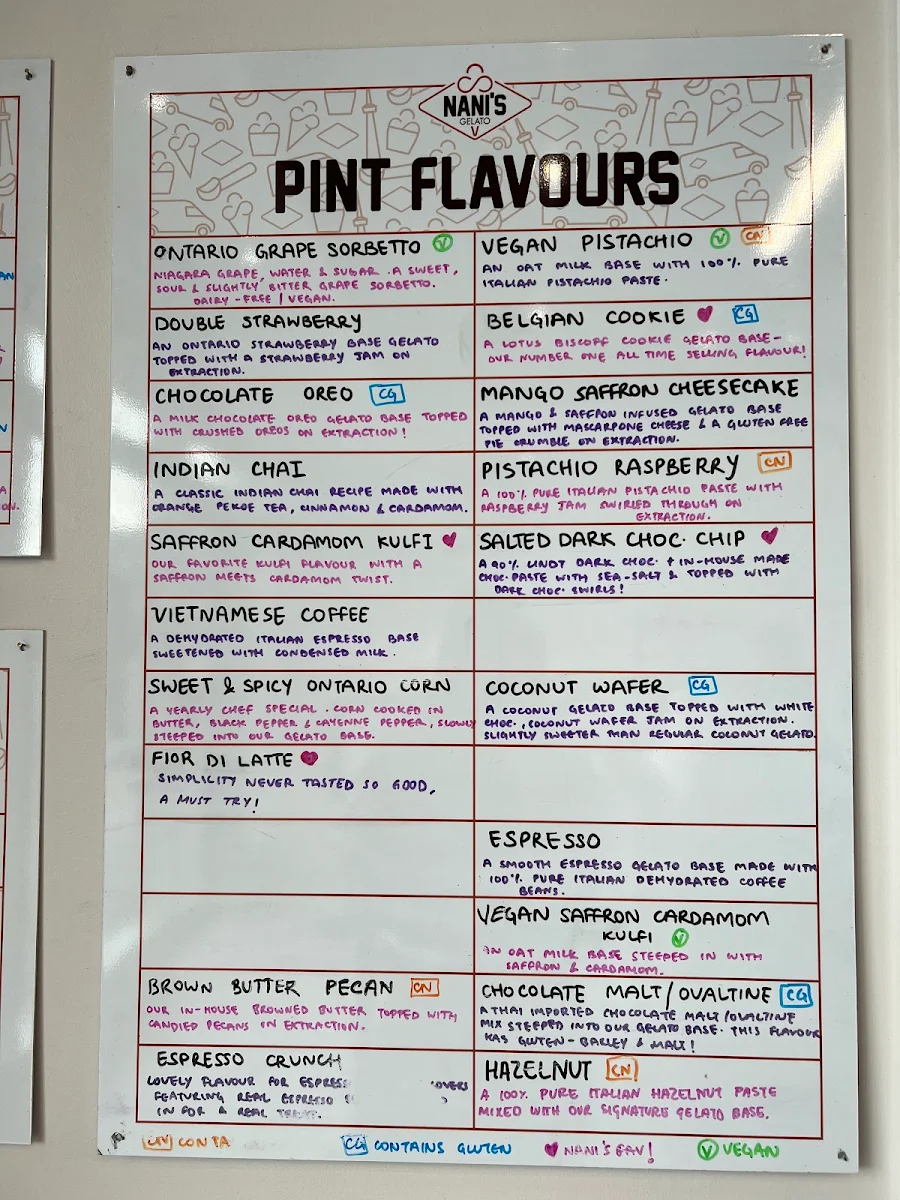 NANI'S
GELATO
PINT FLAVOURS
ONTARIO GRAPE SORBETTO V
NIAGARA GRAPE, WATER & SUGAR. A SWEET,
SOUR & SLIGHTLY BITTER GRAPE SORBETTO.
DAIRY-FREE | VEGAN.
DOUBLE STRAWBERRY
AN ONTARIO STRAWBERRY BASE GELATO
TOPPED WITH A STRAWBERRY JAM ON
EXTRACTION.
CHOCOLATE OREO CG
A MILK CHOCOLATE OREO GELATO BASE TOPPED
WITH CRUSHED OREOS ON EXTRACTION!
INDIAN CHAI
A CLASSIC INDIAN CHAI RECIPE MADE WITH
ORANGE PEKOE TEA, CINNAMON & CARDAMOM.
SAFFRON CARDAMOM KULFI ♥
OUR FAVORITE KULFI FLAVOUR WITH A
SAFFRON MEETS CARDAMOM TWIST.
VIETNAMESE COFFEE
A DEHYDRATED ITALIAN ESPRESSO BASE
SWEETENED WITH CONDENSED MILK.
SWEET & SPICY ONTARIO CORN
A YEARLY CHEF SPECIAL. CORN COOKED IN
BUTTER, BLACK PEPPER & CAYENNE PEPPER, SLOWLY
STEEPED INTO OUR GELATO BASE.
FIOR DI LATTE ♥
SIMPLICITY NEVER TASTED SO GOOD,
A MUST TRY!
BROWN BUTTER PECAN CN
OUR IN-HOUSE BROWNED BUTTER TOPPED WITH
CANDIED PECANS IN EXTRACTION.
ESPRESSO CRUNCH
LOVELY FLAVOUR FOR ESPRESS OVERS
FEATURING REAL ESPRESSO
IN FOR A REAL
VEGAN PISTACHIO V CN
AN OAT MILK BASE WITH 100% PURE
ITALIAN PISTACHIO PASTE.
BELGIAN COOKIE ♥ CG
A LOTUS BISCOFF COOKIE GELATO BASE-
OUR NUMBER ONE ALL TIME SELLING FLAVOUR!
MANGO SAFFRON CHEESECAKE
A MANGO & SAFFRON INFUSED GELATO BASE
TOPPED WITH MASCARPONE CHEESE & A GLUTEN FREE
PIE CRUMBLE ON EXTRACTION.
PISTACHIO RASPBERRY CN
A 100% PURE ITALIAN PISTACHIO PASTE WITH
RASPBERRY JAM SWIRLED THROUGH ON
EXTRACTION.
SALTED DARK CHOC. CHIP ♥
A 90% LINDT DARK CHOC. + IN-HOUSE MADE
CHOC. PASTE WITH SEA-SALT & TOPPED WITH
DARK CHOC. SWIRLS!
COCONUT WAFER CG
A COCONUT GELATO BASE TOPPED WITH WHITE
CHOC., COCONUT WAFER JAM ON EXTRACTION.
SLIGHTLY SWEETER THAN REGULAR COCONUT GELATO.
ESPRESSO
A SMOOTH ESPRESSO GELATO BASE MADE WITH
100% PURE ITALIAN DEHYDRATED COFFEE
BEANS.
VEGAN SAFFRON CARDAMOM
KULFI V
AN OAT MILK BASE STEEPED IN WITH
SAFFRON & CARDAMOM.
CHOCOLATE MALT/OVALTINE CG
A THAI IMPORTED CHOCOLATE MALT/OVALTINE
MIX STEEPED INTO OUR GELATO BASE. THIS FLAVOUR
HAS GLUTEN-BARLEY & MALT!
HAZELNUT CN
A 100% PURE ITALIAN HAZELNUT PASTE
MIXED WITH OUR SIGNATURE GELATO BASE.
CN CONTA
CG CONTAINS GLUTEN
♥ NANI'S FAV!
V VEGAN